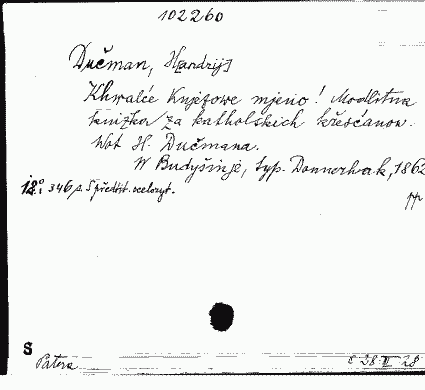 102260
Dučman, H[andrij]
Khwalće Knježowe mjeno! Modlitna
knižka za katholskich křesćanow.
Wot H. Dučmana.
W Budyšinje, typ. Donnerhak, 1862
12°. 346 s. S předtit. oceloryt.
pp
S
Patera
E 28 II 28